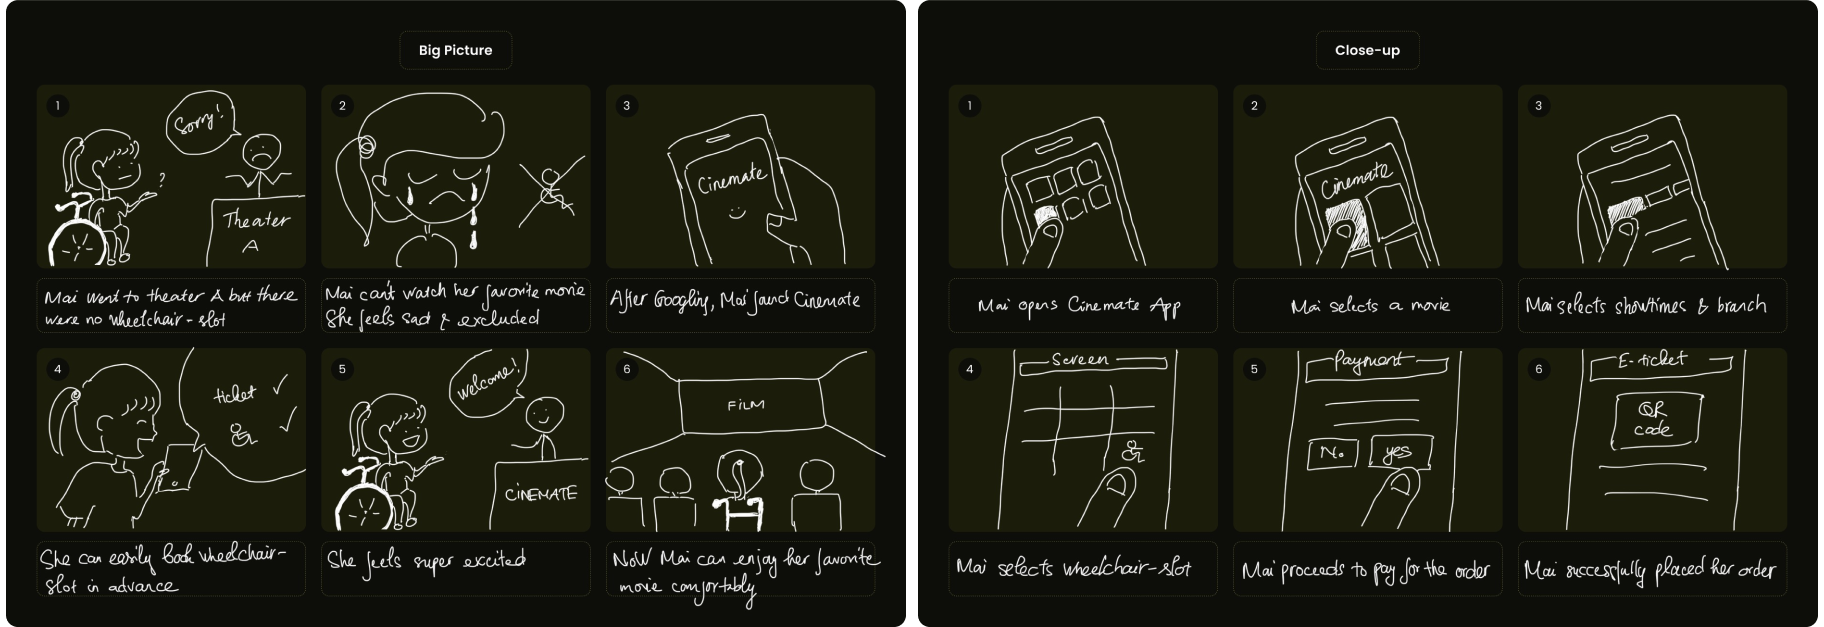 Big Picture
1
Sorry!
?
Theater
A
Mai went to theater A but there
were no wheelchair-slot
2
Mai can't watch her favorite movie
She feels sad & excluded
3
Cinemate
After Googling, Mai found Cinemate
4
ticket ✓
✓
She can easily book wheelchair-
slot in advance
5
Welcome!
CINEMATE
She feels super excited
6
FILM
Now Mai can enjoy her favorite
movie comfortably
Close-up
1
Mai opens Cinemate App
2
Cinemate
Mai selects a movie
3
Mai selects showtimes & branch
4
Screen
Mai selects wheelchair-slot
5
Payment
No
yes
Mai proceeds to pay for the order
6
E-ticket
QR
code
Mai successfully placed her order